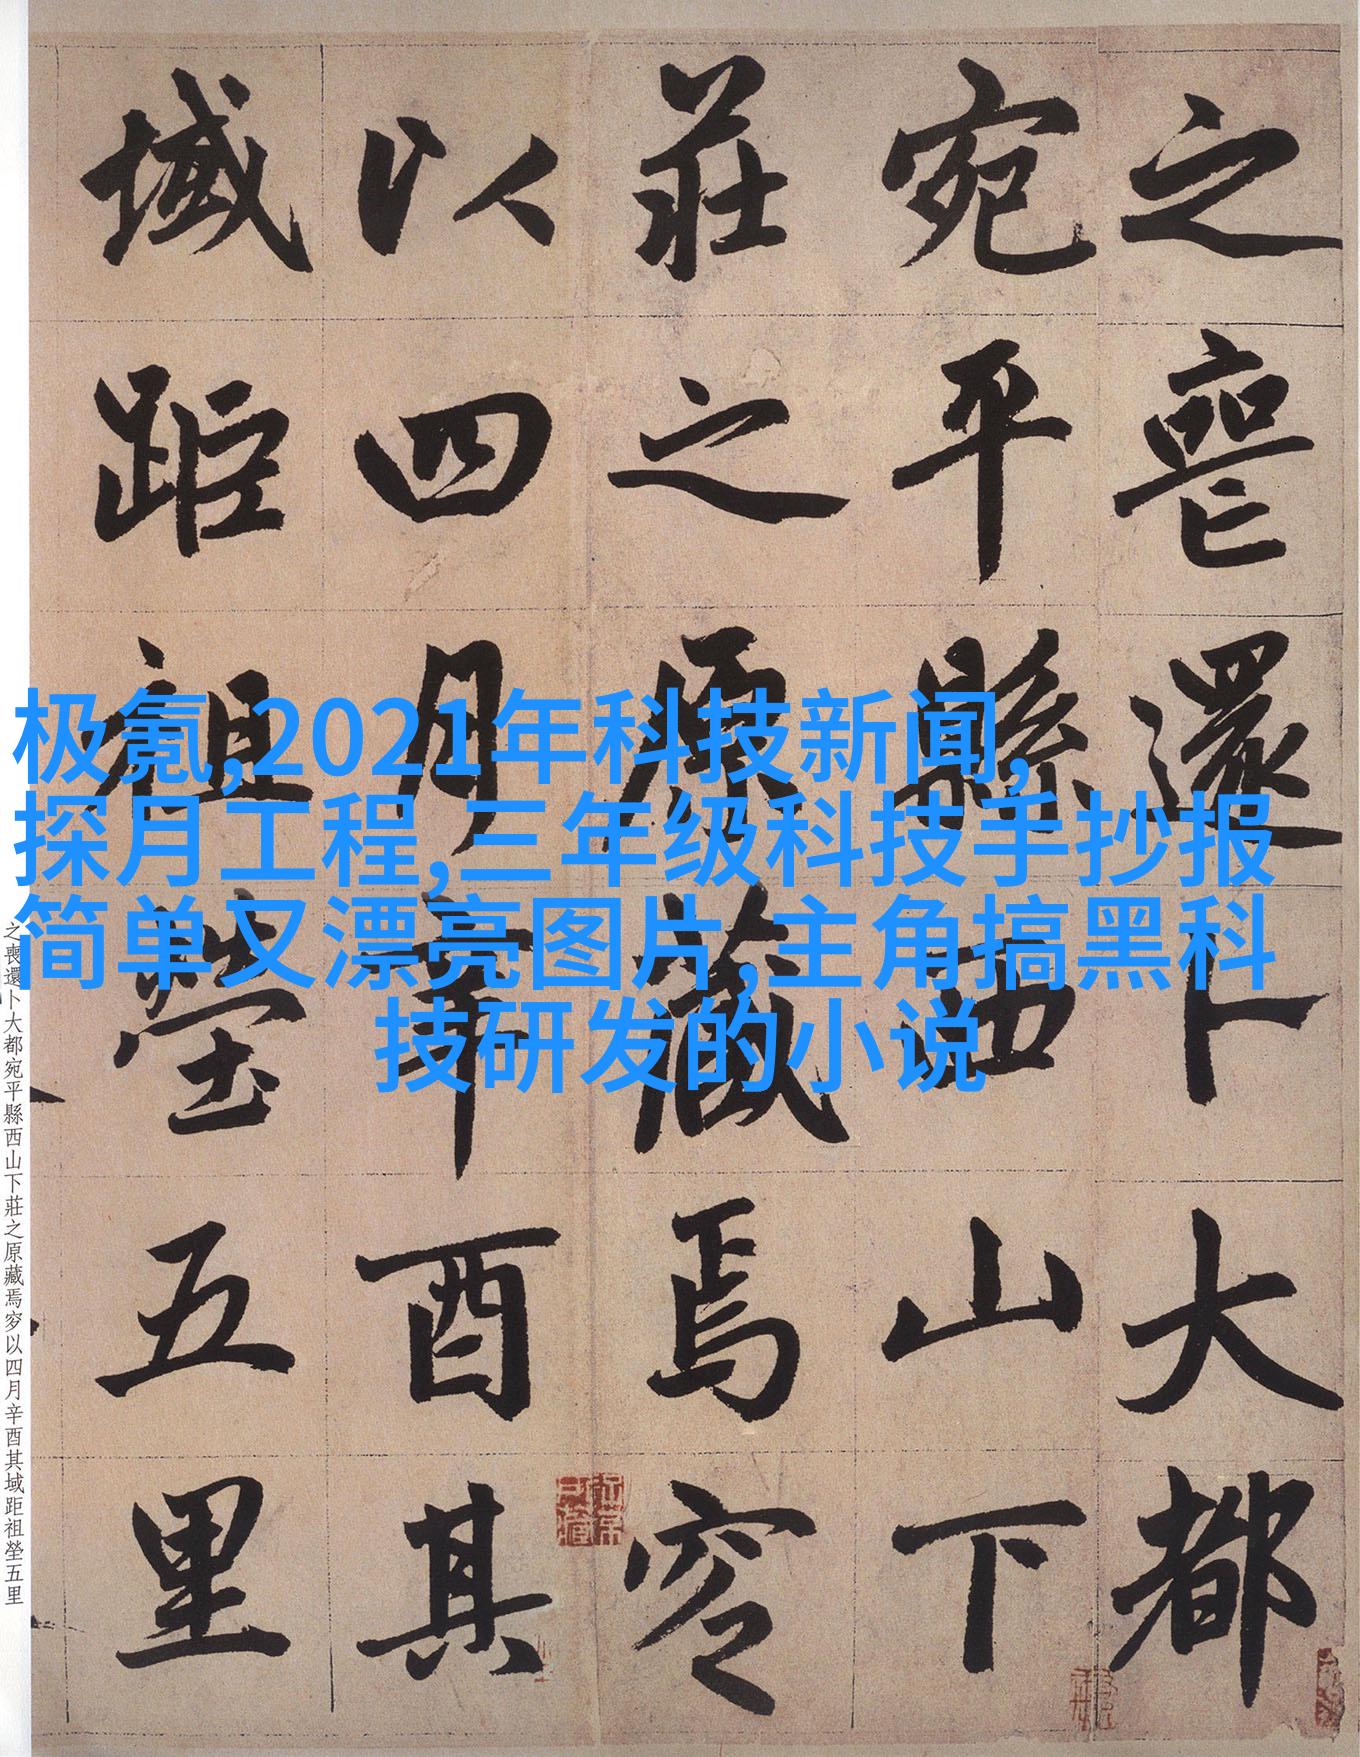 之喪還卜大都
宛平縣西山下
莊之原藏焉穸
以四月辛酉其
域距祖塋五里
极氪,2021年科技新闻,
探月工程,三年级科技手抄报
简单又漂亮图片,主角搞黑科
技研发的小说
之喪還卜大都宛平縣西山下莊之原藏焉穸以四月辛酉其域距祖塋五里